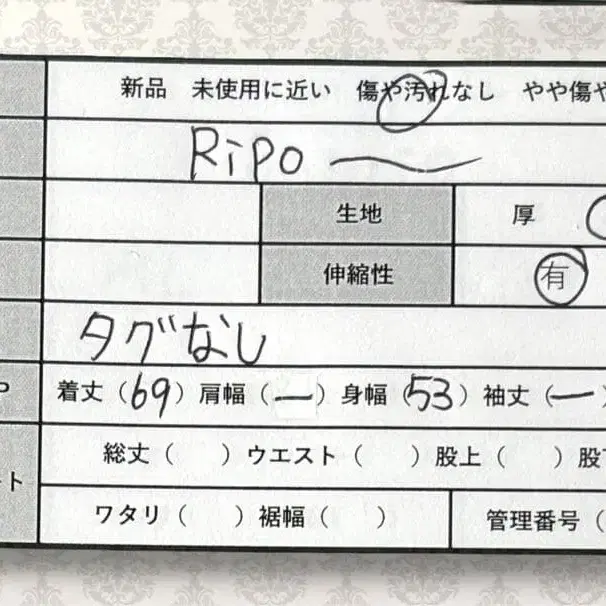 新品 未使用に近い 傷や汚れなし やや傷や
Ripo
生地 厚
伸縮性 有
タグなし
着丈(69) 肩幅(ー) 身幅(53) 袖丈(ー)
総丈( ) ウエスト( ) 股上( ) 股下
ト
ワタリ( ) 裾幅( ) 管理番号(